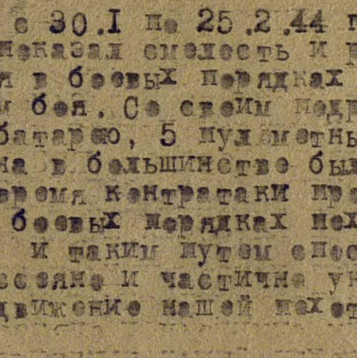 с 30.I по 25.2.44 г
показал смелость и р
я в боевых порядках
и боя. Со своим подр
батарею, 5 пулеметны
на в большинстве был
время контратаки пр
боевых порядках пех
и таким путем спос
ссеяно и частично ун
движение нашей пехот